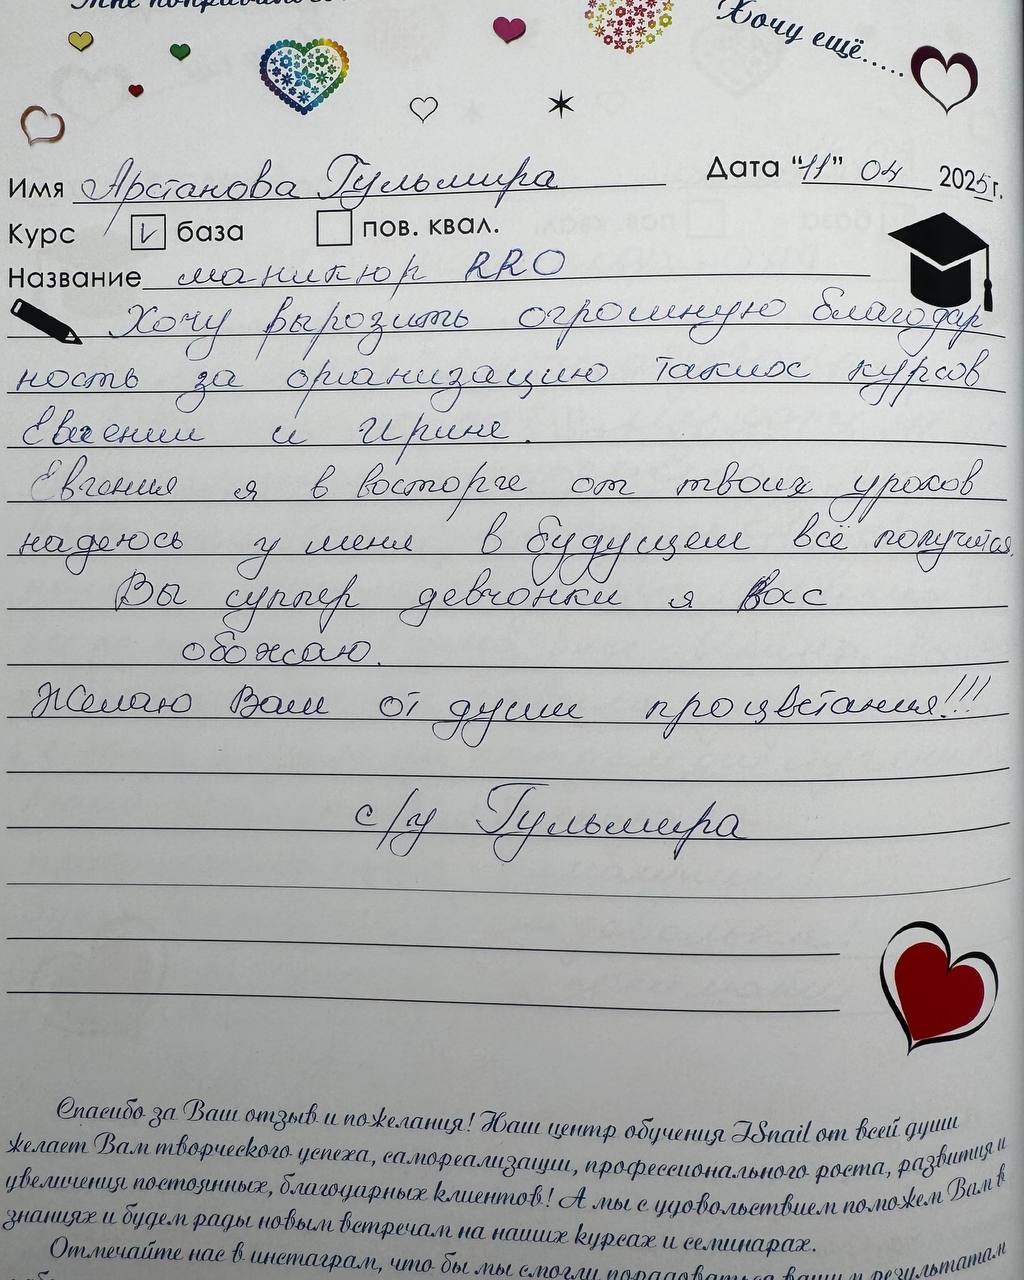 Мне понравилось
Хочу ещё.....
Имя Арстанова Гульмира Дата "11" 04 2025г.
Курс V база пов. квал.
Название маникюр RRO
Хочу вырозить огромную благодар
ность за организацию таких курсов
Евгении и Ирине.
Евгения я в восторге от твоих уроков
надеюсь у меня в будущем всё получится.
Вы суппер девчонки я Вас
обожаю.
Желаю Вам от души процветания!!!
с/у Гульмира
Спасибо за Ваш отзыв и пожелания! Наш центр обучения ISnail от всей души
желает Вам творческого успеха, самореализации, профессионального роста, развития и
увеличения постоянных, благодарных клиентов! А мы с удовольствием поможем Вам в
знаниях и будем рады новым встречам на наших курсах и семинарах.
Отмечайте нас в инстаграм, что бы мы смогли порадоваться вашим результатам